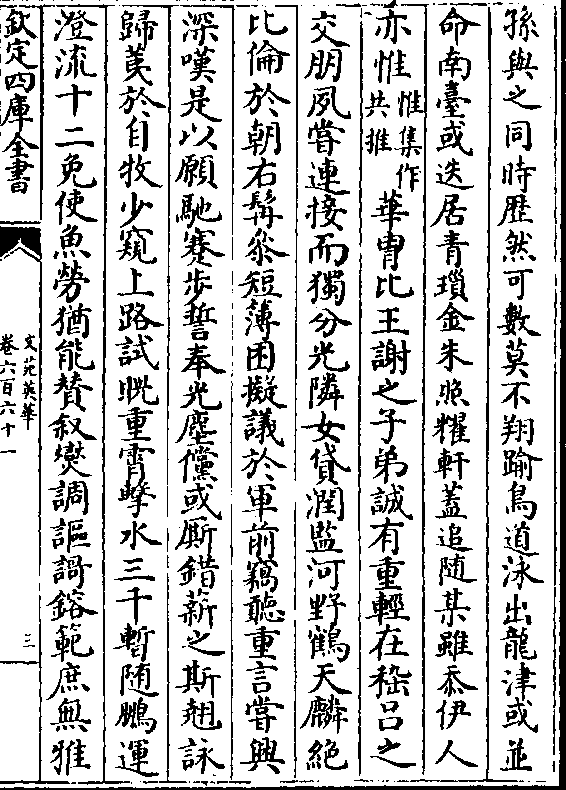 孫與之同時歴然可數莫不翔踰鳥道泳出龍津或並
命南臺或迭居青瑣金朱照耀軒葢追随某雖忝伊人
亦惟惟集作共推華胄比王謝之子弟誠有重輕在嵇吕之
交朋夙嘗連接而獨分光隣女貸潤監河野鶴天麟絶
比倫於朝右髯叅短薄困擬議於軍前竊聽重言嘗興
深嘆是以願馳蹇步誓奉光塵儻或厮錯薪之斯翹詠
歸荑於自牧少窺上路試睨重霄擊水三千暫随鵬運
澄流十二免使魚勞猶能賛叙爕調謳謌鎔範庶無雅
欽定四庫全書
文苑英華
卷六百六十一
三